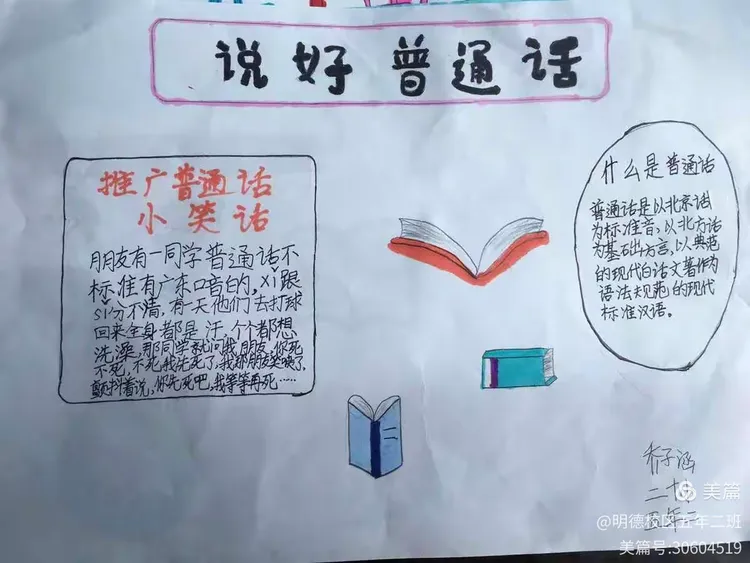 说好普通话
推广普通话
小笑话
月朋友有一同学普通话不
标准有广东口音的,xǐ跟
sǐ分不清,有一天他们去打球
回来全身都是汗,个个都想
洗澡,那同学就问我朋友,你死
不死,不死我先死了,我都朋友笑喷了,
颤抖着说,你先死吧,我等等再死……
什么是普通话
普通话是以北京话
为标准音,以北方话
为基础方言,以典范
的现代白话文著作为
语法规范的现代
标准汉语。
乔子涵
二十
五年二
美篇
@明德校区五年二班
美篇号:30604519